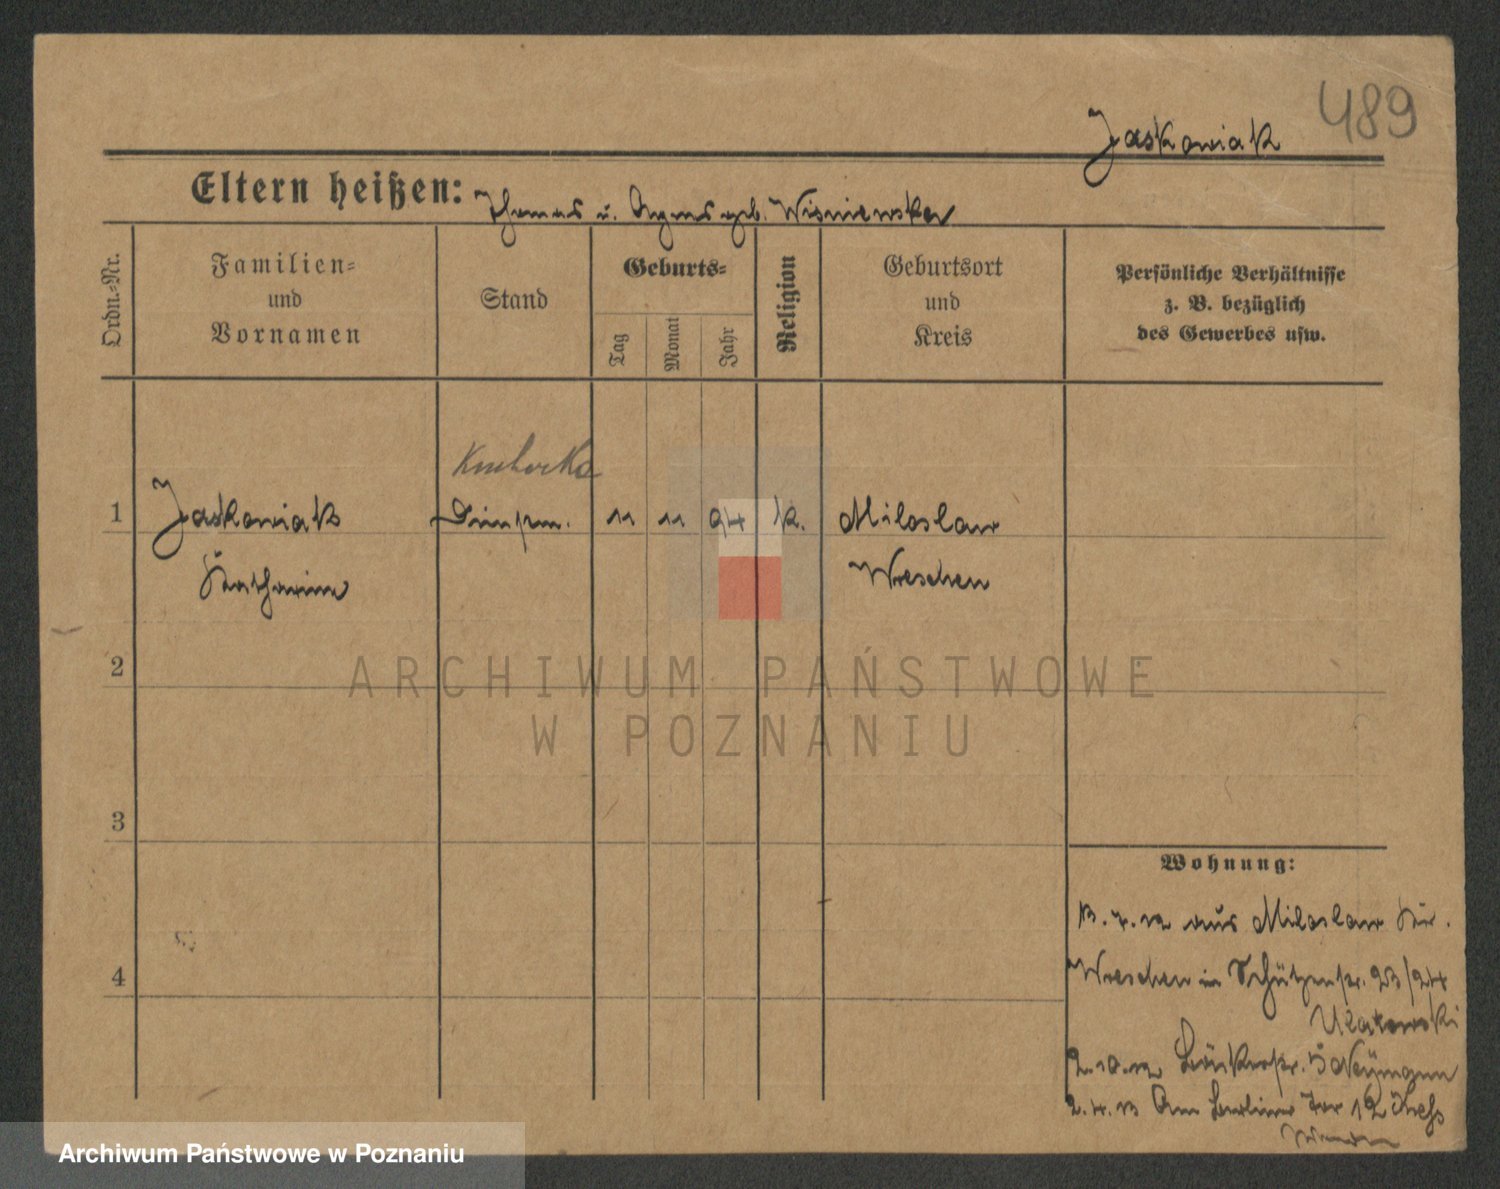 489
Jaskowiak
Eltern heißen: Thomas u. Agnes geb. Wisniewska
Ordn.-Nr.
Familien-
und
Vornamen
Stand
Geburts-
Tag
Monat
Jahr
Religion
Geburtsort
und
Kreis
Persönliche Verhältnisse
z. B. bezüglich
des Gewerbes usw.
Kucharka
1 Jaskowiak 11 11 94 k. Miloslaw
Katharina Wreschen
2
ARCHIWUM PAŃSTWOWE
W POZNANIU
3
Wohnung:
13.7.12 aus Miloslaw Kr.
4
Wreschen in Schützenstr. 23/24
2.10.12 5
2.4.13 Am Berliner Tor 12
Archiwum Państwowe w Poznaniu